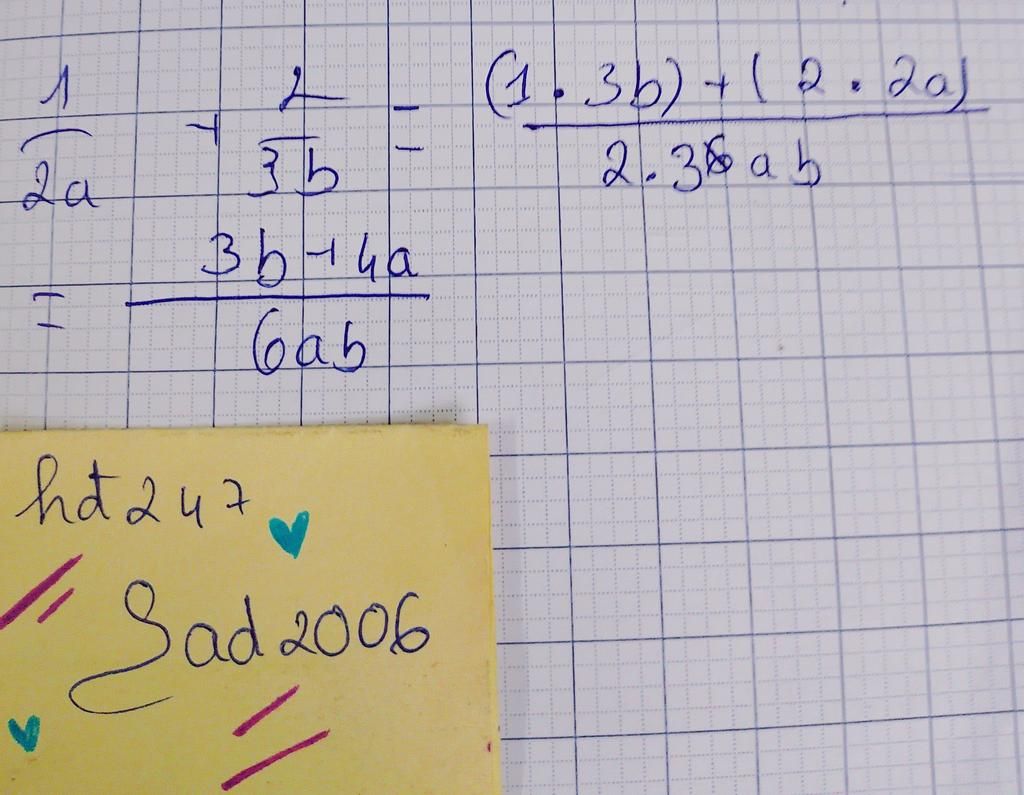 1/2a + 2/3b = (1.3b)+(2.2a)/2.3ab
= 3b+4a/6ab
hdt247
Sad2006